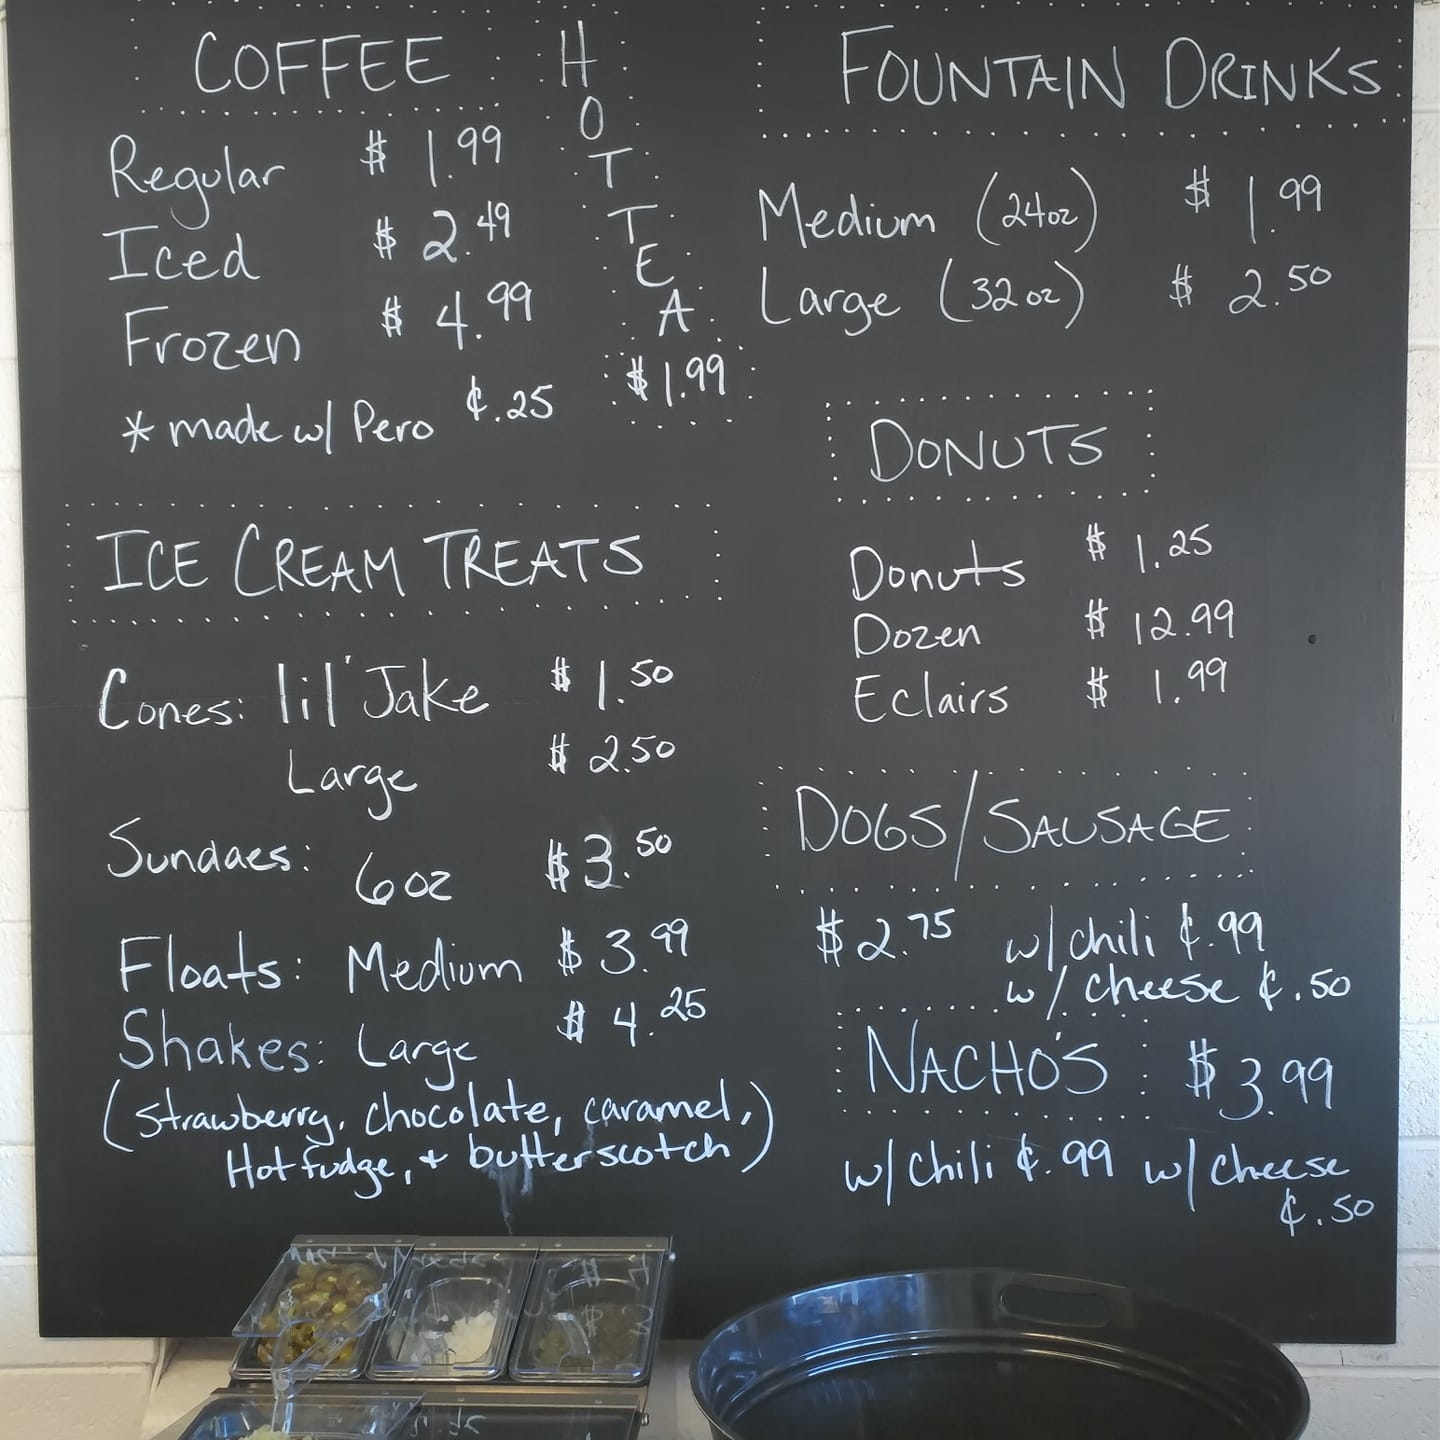 COFFEE
Regular $ 1.99
Iced $ 2.49
Frozen $ 4.99
* made w/ Pero ¢.25
HOT
TEA
$1.99
FOUNTAIN DRINKS
Medium (24oz) $ 1.99
Large (32oz) $ 2.50
DONUTS
Donuts $ 1.25
Dozen $ 12.99
Eclairs $ 1.99
ICE CREAM TREATS
Cones: lil' Jake $ 1.50
Large $ 2.50
Sundaes: 6oz $3.50
Floats: Medium $ 3.99
Shakes: Large $ 4.25
(strawberry, chocolate, caramel,
Hot fudge, + butterscotch)
DOGS/SAUSAGE
$2.75 w/ chili ¢.99
w/ cheese ¢.50
NACHO'S $3.99
w/ chili ¢.99 w/ cheese
¢.50